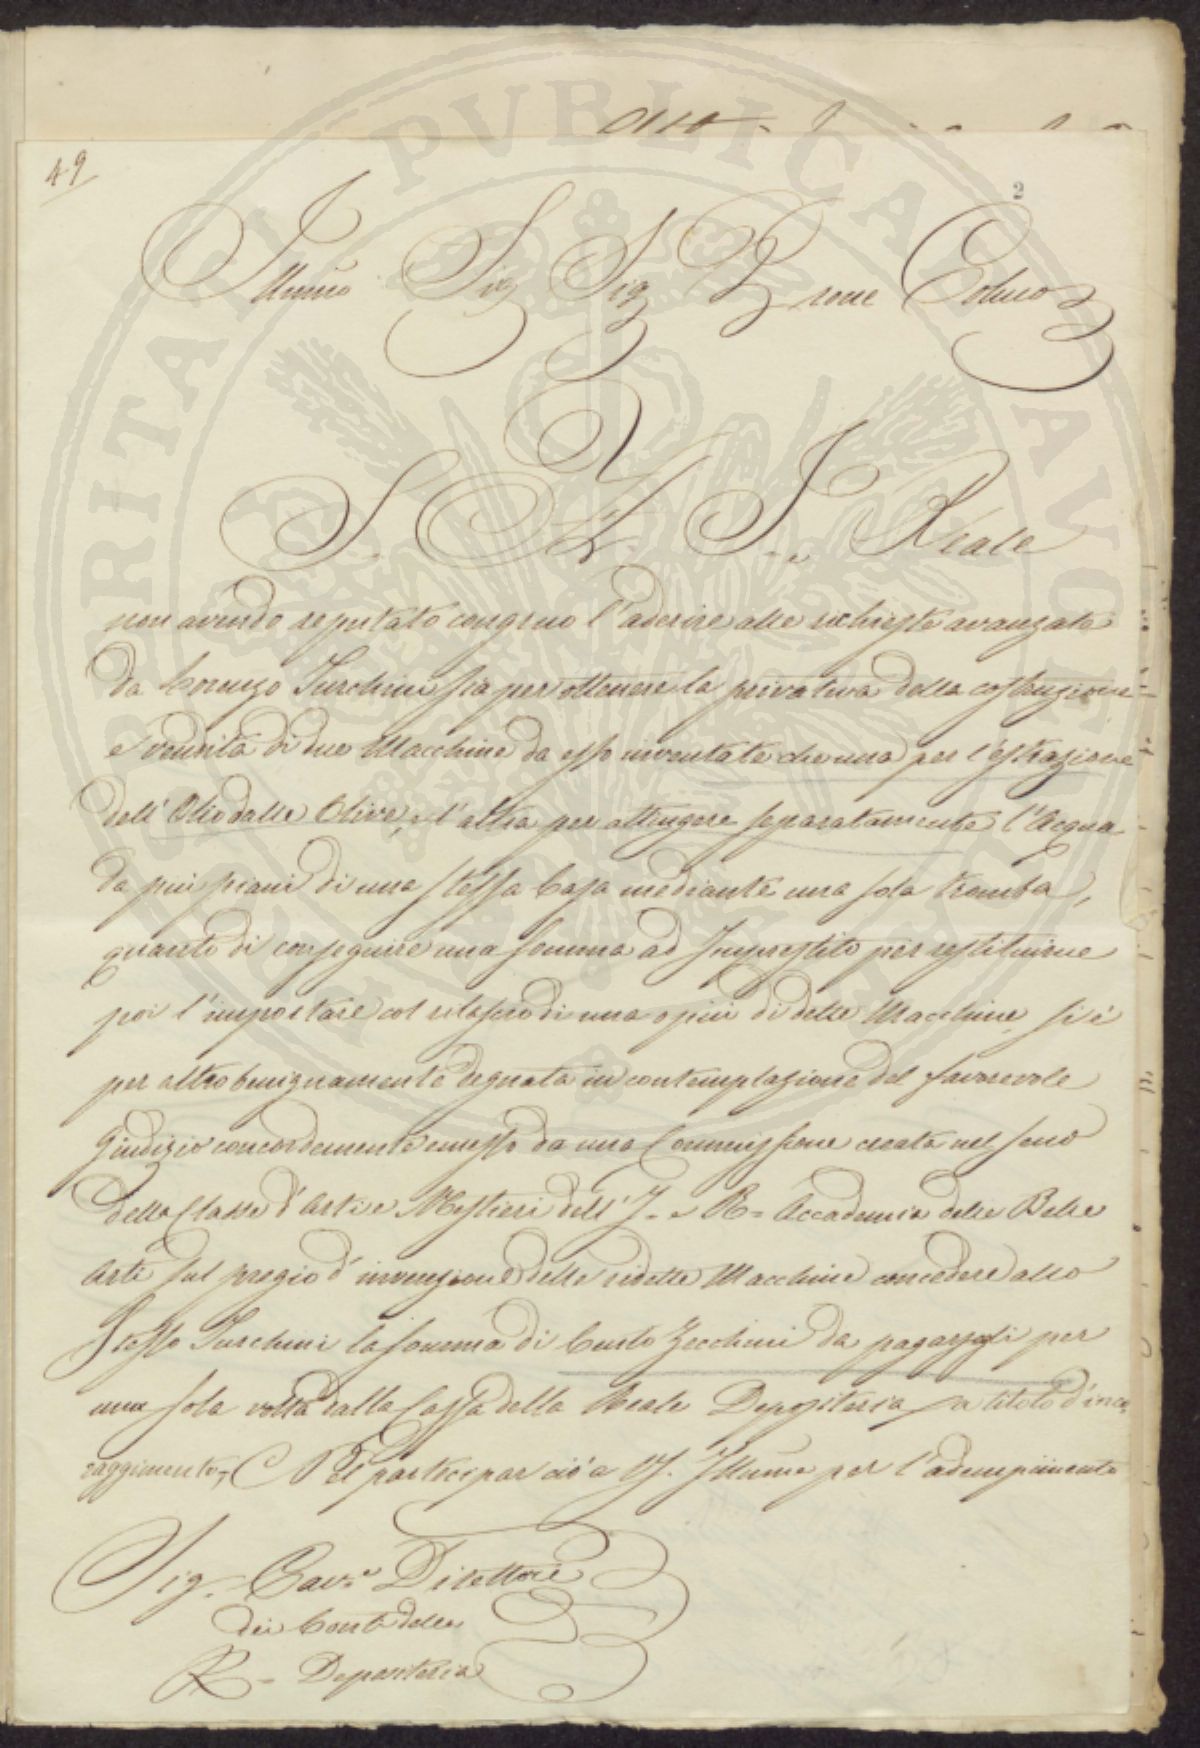 49
2
Illmo Sig Sig Prone Colmo
S. A. I. e Reale
non avendo reputato congruo l'aderire alle richieste avanzate
da Lorenzo Turchini sia per ottenere la privativa della costruzione
e vendita di due Macchine da esso inventate che una per l'estrazione
dell'Olio dalle Olive, e l'altra per attingere separatamente l'Acqua
da più piani di una stessa Casa mediante una sola tromba,
quanto di conseguire una somma ad Imprestito per restituirne
poi l'importare col rilascio di una o più di dette Macchine, si è
per altro benignamente degnata in contemplazione del favorevole
Giudizio concordemente emesso da una Commissione creata nel seno
della Classe d'Arti e Mestieri dell'I. e R. Accademia delle Belle
Arti sul pregio d'invenzione delle ridette Macchine concedere allo
Stesso Turchini la somma di Cento Zecchini da pagarsegli per
una sola volta dalla Cassa della Reale Depositeria a titolo d'inco,,
raggimento; Nel partecipar ciò a VS. Illuma per l'adempimento
Sig. Cav.e Direttore
dei Conti della
R. Depositeria